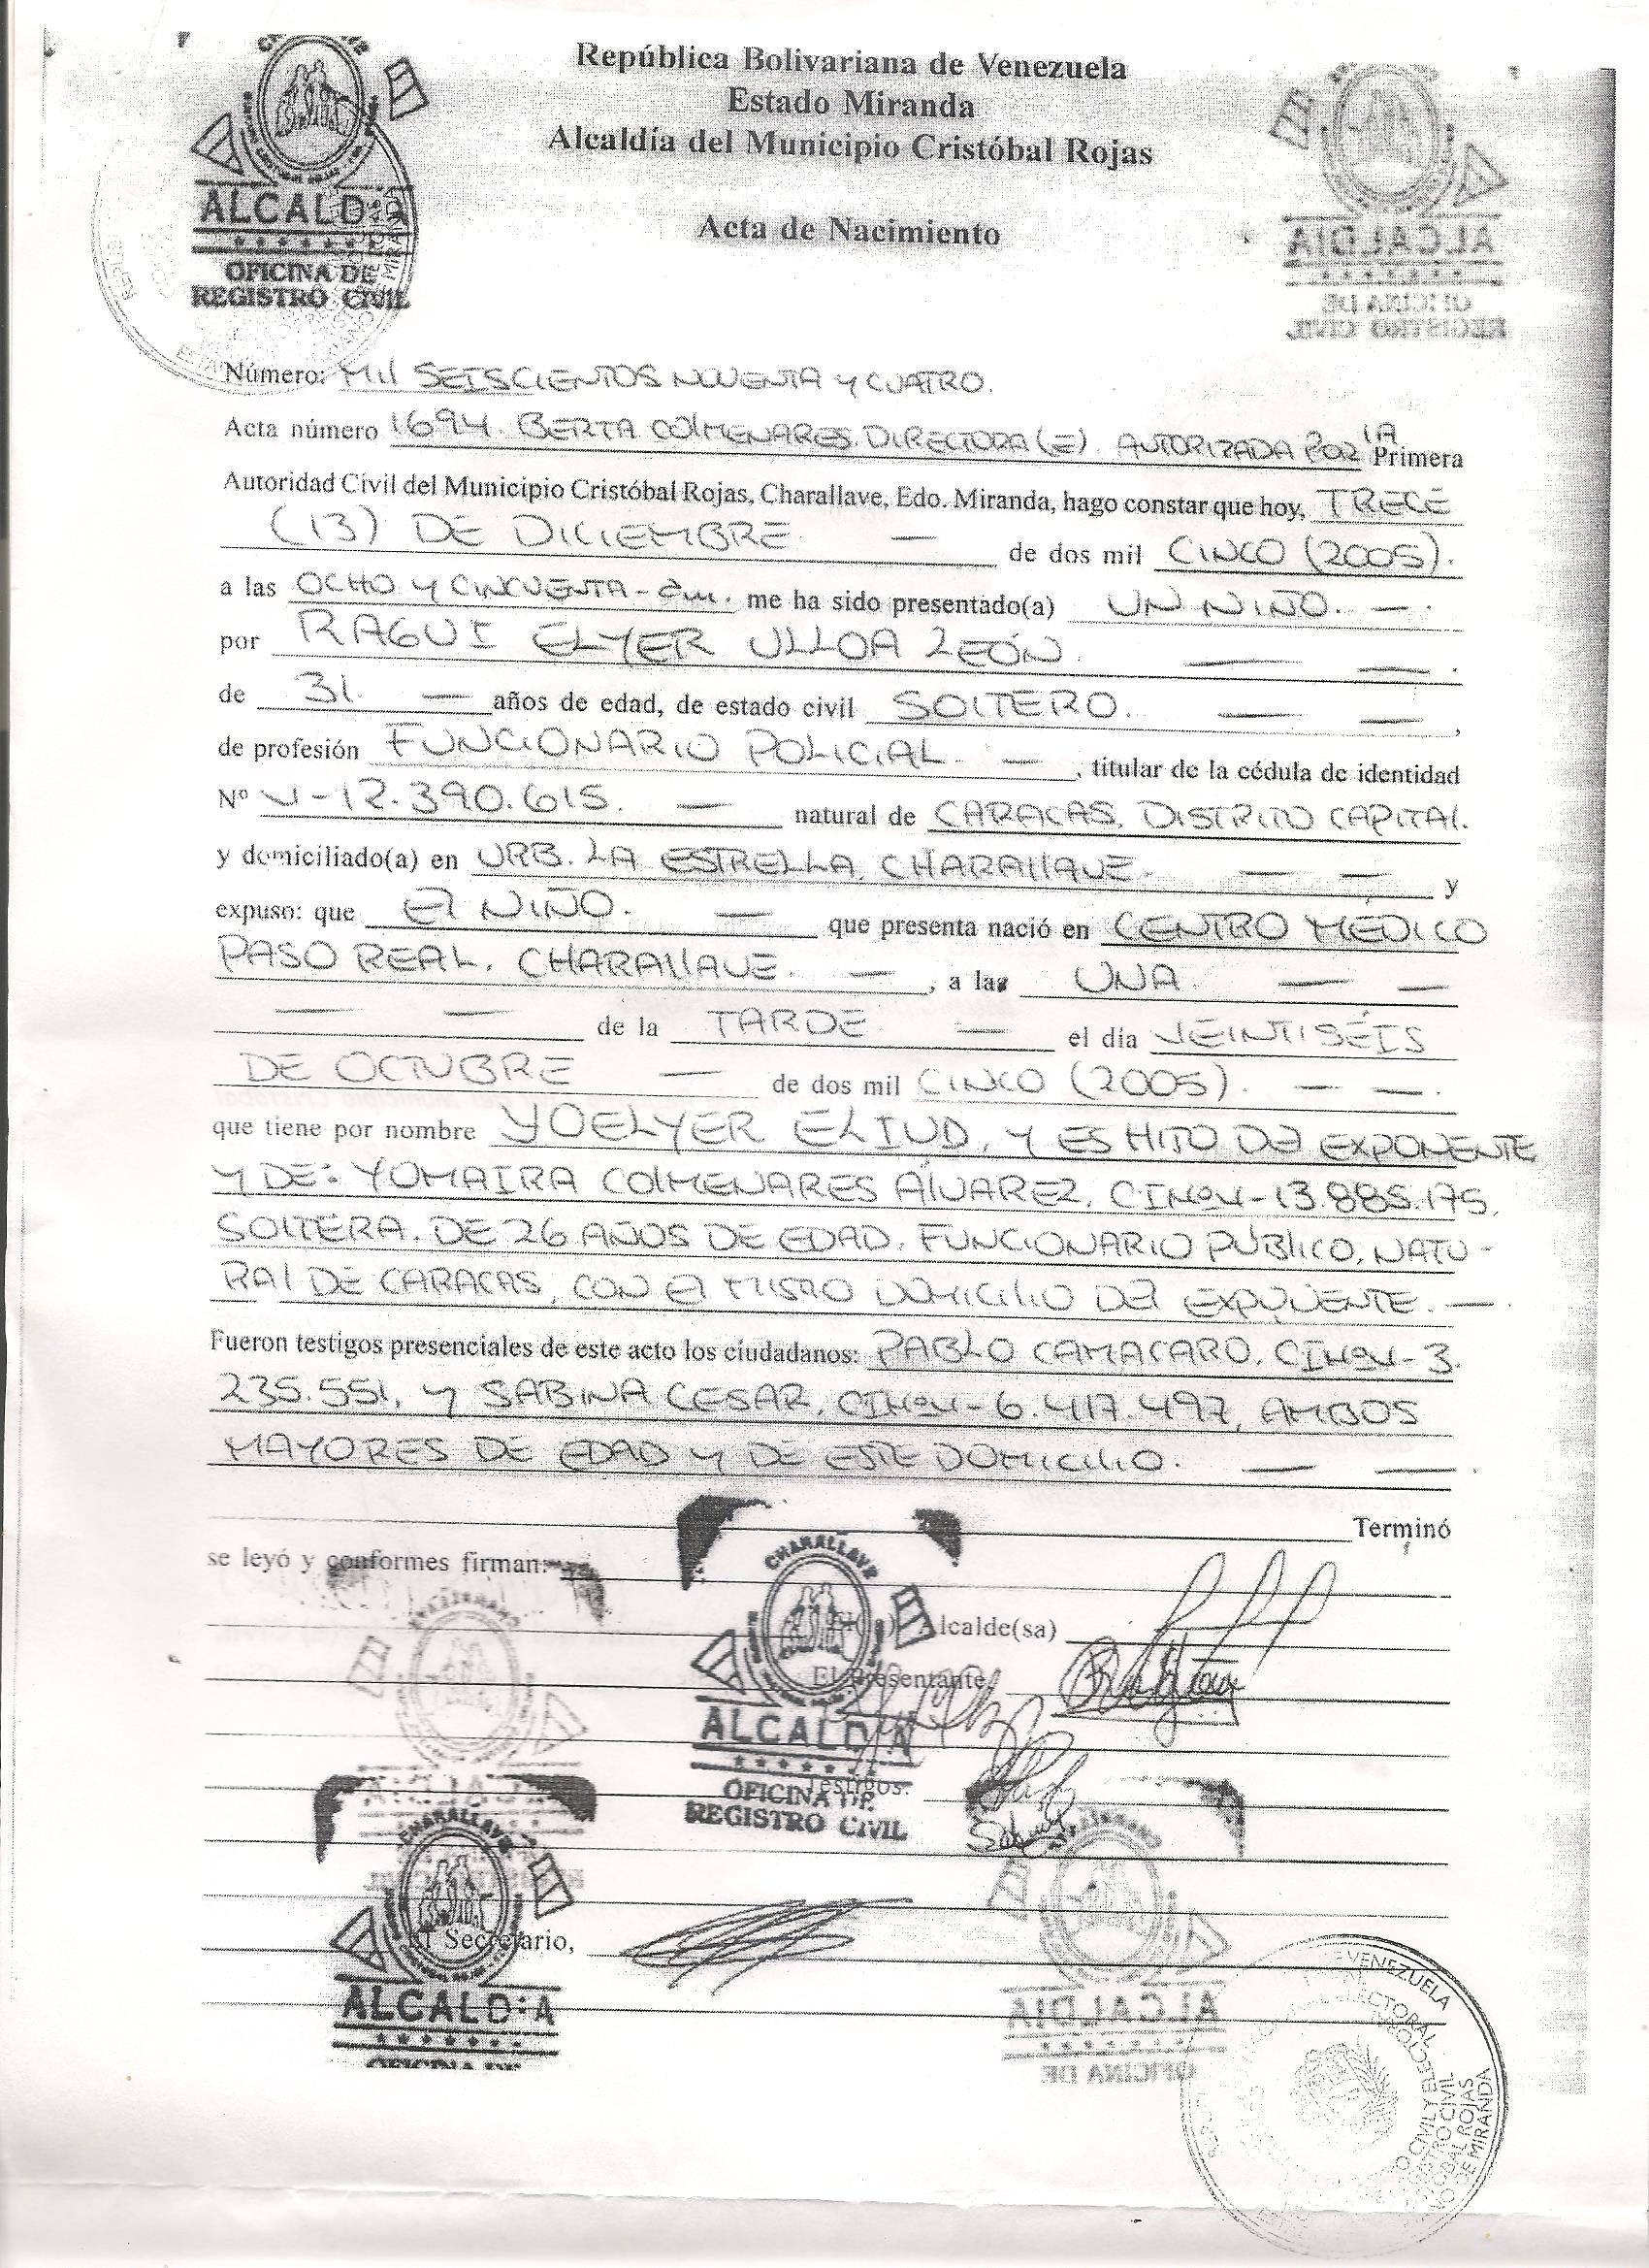 República Bolivariana de Venezuela
Estado Miranda
Alcaldía del Municipio Cristóbal Rojas
Acta de Nacimiento
ALCALDIA
OFICINA DE
REGISTRO CIVIL
ALCALDIA
OFICINA DE
REGISTRO CIVIL
Número: Mil SEISCIENTOS NOVENTA Y CUATRO.
Acta número 1694. BERTA COlMENARES. DIRECTORA (E). AUTORIZADA POR lA Primera
Autoridad Civil del Municipio Cristóbal Rojas, Charallave, Edo. Miranda, hago constar que hoy, TRECE
(13) DE DICIEMBRE. — de dos mil CINCO (2005).
a las OCHO Y CINCUENTA - am. me ha sido presentado(a) UN NIÑO. — .
por RAGUI ELYER ULLOA LEÓN. — — .
de 31. — años de edad, de estado civil SOlTERO. — — ,
de profesión FUNCIONARIO POLICIAL. — , titular de la cédula de identidad
Nº V-12.390.615. — natural de CARACAS. DISTRITO CAPITAl.
y domiciliado(a) en URB. LA ESTRELLA. CHARAllAVE. — — y
expuso: que El NIÑO. — que presenta nació en CENTRO MEDICO
PASO REAL. CHARAllAVE. — , a las UNA — —
— — de la TARDE — el día VEINTISÉIS
DE OCTUBRE — de dos mil CINCO (2005). — — .
que tiene por nombre YOELYER ELIUD, Y ES HIJO DEl EXPONENTE
Y DE: YOMAIRA COlMENARES AlVAREZ. CINºV-13.885.175,
SOlTERA. DE 26 AÑOS DE EDAD. FUNCIONARIO PÚBlICO, NATU-
RAl DE CARACAS, CON El MISMO DOMICIlIO DEl EXPONENTE. — .
Fueron testigos presenciales de este acto los ciudadanos: PABLO CAMACARO. CINºV-3.
235.551, Y SABINA CESAR. CINºV-6.417.497, AMBOS
MAYORES DE EDAD Y DE ESTE DOMICIlIO. — — .
Terminó
se leyó y conformes firman:
CHARALLAVE
Alcalde(sa)
El Presentante,
ALCALDIA
Testigos:
OFICINA DE
REGISTRO CIVIL
CHARALLAVE
El Secretario,
ALCALDIA
OFICINA DE
ALCALDIA
OFICINA DE
VENEZUELA
ELECTORAL
REGISTRO CIVIL
CRISTOBAL ROJAS
DE MIRANDA